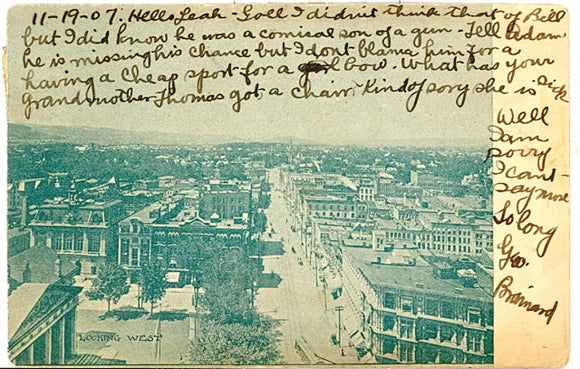 11-19-07. Hello Leah - Goll I didn't think that of Bill
but I did know he was a comical son of a gun - Tell Adam
he is missing his chance but I dont blame him for a
having a cheap sport for a bow. What has your
grandmother Thomas got a chair, - Kind of sory she is sick
Well
I am
sorry
I cant
say more
So long
Geo.
Brainard
LOOKING WEST